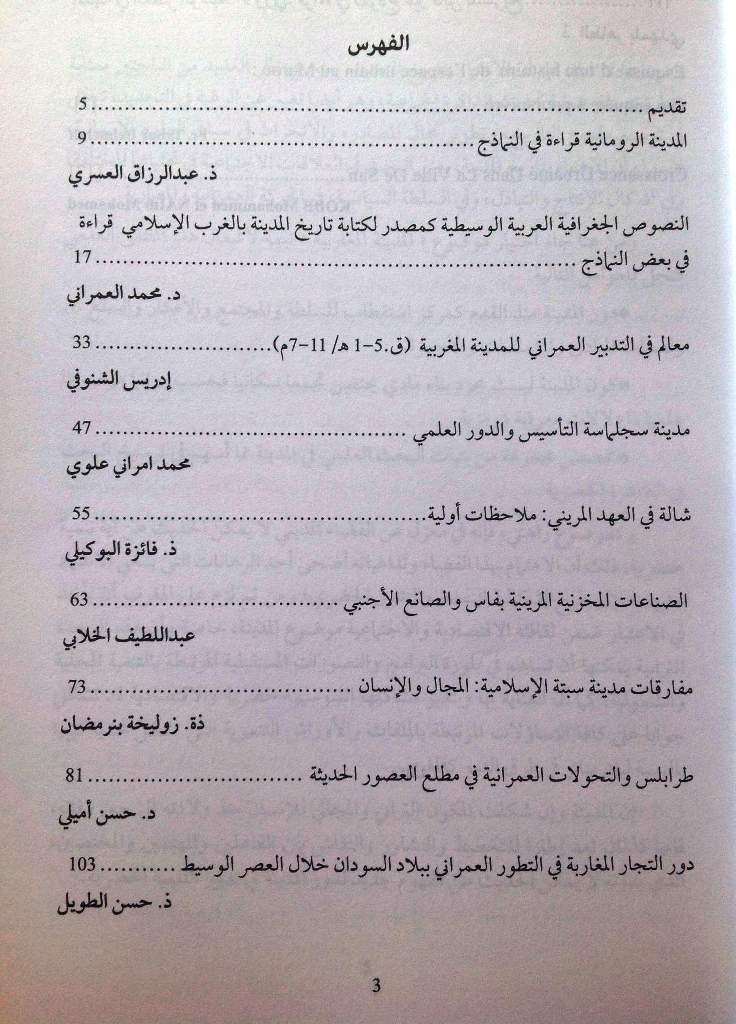 الفهرس
تقديم ........................................ 5
المدينة الرومانية قراءة في النماذج ........................................ 9
ذ. عبدالرزاق العسري
النصوص الجغرافية العربية الوسيطية كمصدر لكتابة تاريخ المدينة بالغرب الإسلامي قراءة
في بعض النماذج ........................................ 17
د. محمد العمراني
معالم في التدبير العمراني للمدينة المغربية (ق.5-1 هـ/ 11-7م)........................................ 33
إدريس الشنوفي
مدينة سجلماسة التأسيس والدور العلمي ........................................ 47
محمد امراني علوي
شالة في العهد المريني: ملاحظات أولية........................................ 55
ذ. فائزة البوكيلي
الصناعات المخزنية المرينية بفاس والصانع الأجنبي ........................................ 63
عبداللطيف الخلابي
مفارقات مدينة سبتة الإسلامية: المجال والإنسان ........................................ 73
ذة. زوليخة بنرمضان
طرابلس والتحولات العمرانية في مطلع العصور الحديثة ........................................ 81
د. حسن أميلي
دور التجار المغاربة في التطور العمراني ببلاد السودان خلال العصر الوسيط ........... 103
ذ. حسن الطويل
3